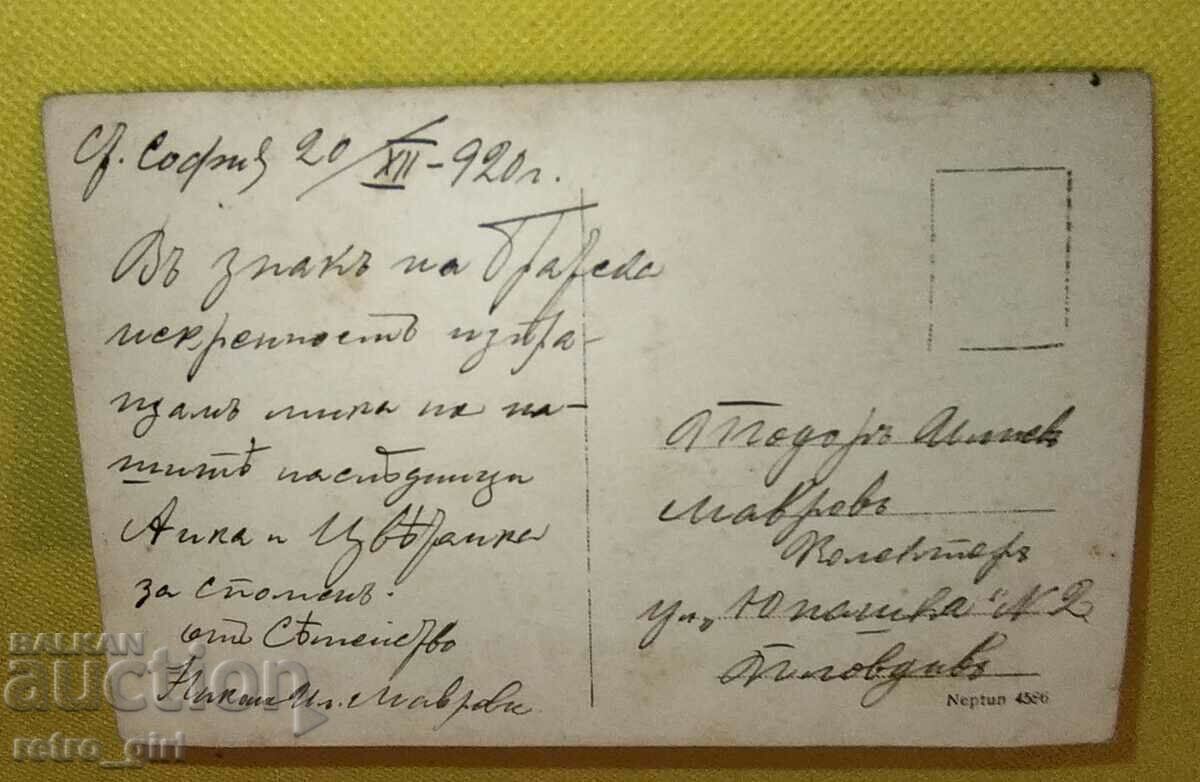 гр. София 20/XII-920 г.
Въ знакъ на братска
искренность изпра-
щамъ лика на на-
шитѣ наслѣдници
Анка и Цвѣтанка
за споменъ.
отъ Сѣмейство
Никола Ил. Маврови
Тодоръ Илиевъ
Мавровъ
Колекторъ
ул. "Юнашка" N 2
Пловдивъ
Neptun 4586
BALKAN
auction
retro_girl